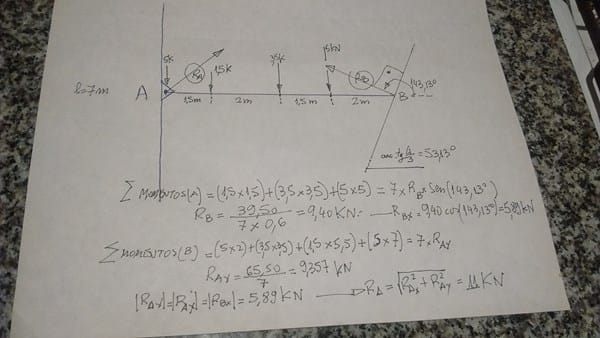 5k
RA
1,5k
5kN
143,13°
l=7m
A
1,5m
2m
1,5m
2m
B
arc.tg 4/3 = 53,13°
Σ MOMENTOS(A) = (1,5×1,5)+(3,5×3,5)+(5×5) = 7×RB×Sen(143,13°)
RB = 39,50 / 7×0,6 = 9,40KN ∴ RBX = 9,40 cos(143,13°) = 5,89kN
Σ MOMENTOS(B) = (5×2)+(3,5×3,5)+(1,5×5,5)+(5×7) = 7×RAY
RAY = 65,50 / 7 = 9,357 kN
|RAX|=|RBX| = 5,89KN → RA = √RAX²+RAY² = 11KN